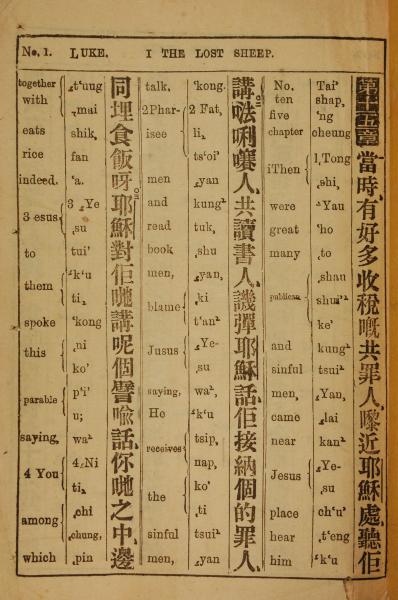 No. 1. LUKE. I THE LOST SHEEP.
第十五章 當時、有好多收稅嘅共罪人、嚟近耶穌處、聽佢
Tai'
shap,
'ng
cheung
1,Tong
,shi,
'Yau
'ho
,to
,shau
shui'
ke'
kung'
tsui'
,Yan,
,lai
kan'
,Ye-
,su
ch'u'
,t'eng
'k'u
No.
ten
five
chapter
1Then
were
great
many
publican
and
sinful
men,
came
near
Jesus
place
hear
him
講。唎嚷人、共讀書人、譏彈耶穌話、佢接納個的罪人、
'kong.
2 Fat,
li,
ts'oi'
,yan
kung'
tuk,
,shu
,yan,
,ki
t'an'
,Ye-
,su
wa',
'k'u
tsip,
nap,
ko'
ti
tsui'
,yan
talk.
2Phar-
isee
men
and
read
book
men,
blame
Jusus
saying,
He
receives
the
sinful
men,
同埋食飯呀。耶穌對佢哋講呢個譬喻話、你哋之中、邊
,t'ung
,mai
shik,
fan
'a.
3 ,Ye
,su
tui'
'k'u
ti,
'kong
,ni
ko'
p'i'
u;
wa'
4,Ni
ti,
,chi
,chung,
,pin
together
with
eats
rice
indeed.
3 esus
to
them
spoke
this
parable
saying,
4 You
among
which